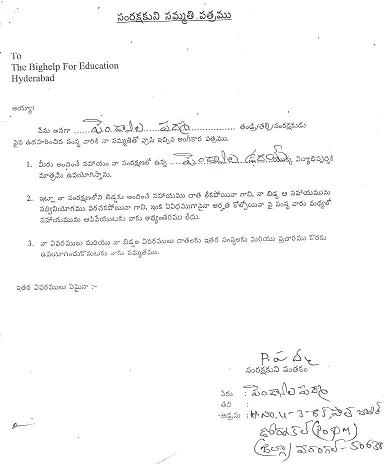 సంరక్షకుని సమ్మతి పత్రము
To
The Bighelp For Education
Hyderabad
అయ్యా!
నేను అనగా ......పెండ్యాల పద్మ...... తండ్రి/తల్లి/సంరక్షకుడు
పైన ఉదహరించిన సంస్థ వారికి నా సమ్మతితో వ్రాసి ఇచ్చిన అంగీకార పత్రము.
1. మీరు అందించే సహాయం నా సంరక్షణలో ఉన్న ....పెండ్యాల ఉదయ్.. యొక్క విద్యాభివృద్ధికి
మాత్రమే ఉపయోగిస్తాను.
2. ఇట్లా నా సంరక్షణలోని బిడ్డకు అందించే సహాయము దాత లేకపోయినా గాని, నా బిడ్డ ఆ సహాయమును
సద్వినియోగము పరచకపోయినా గాని, ఇంక ఏవిధముగానైనా అర్హత కోల్పోయినా పై సంస్థ వారు మధ్యలో
సహాయమును ఆపివేయుటకు నాకు అభ్యంతరము లేదు.
3. నా వివరములు మరియు నా బిడ్డల వివరములు దాతలకు ఇతర సంస్థలకు మరియు ప్రచారము కొరకు
ఉపయోగించుకొనుటకు నాకు సమ్మతము.
ఇతర వివరములు ఏమైనా :-
P. పద్మ
సంరక్షకుని సంతకం
పేరు : పెండ్యాల పద్మ
తేది :
అడ్రసు : H NO. 4-3-65,
(Po,DM)
(జిల్లా) వరంగల్-